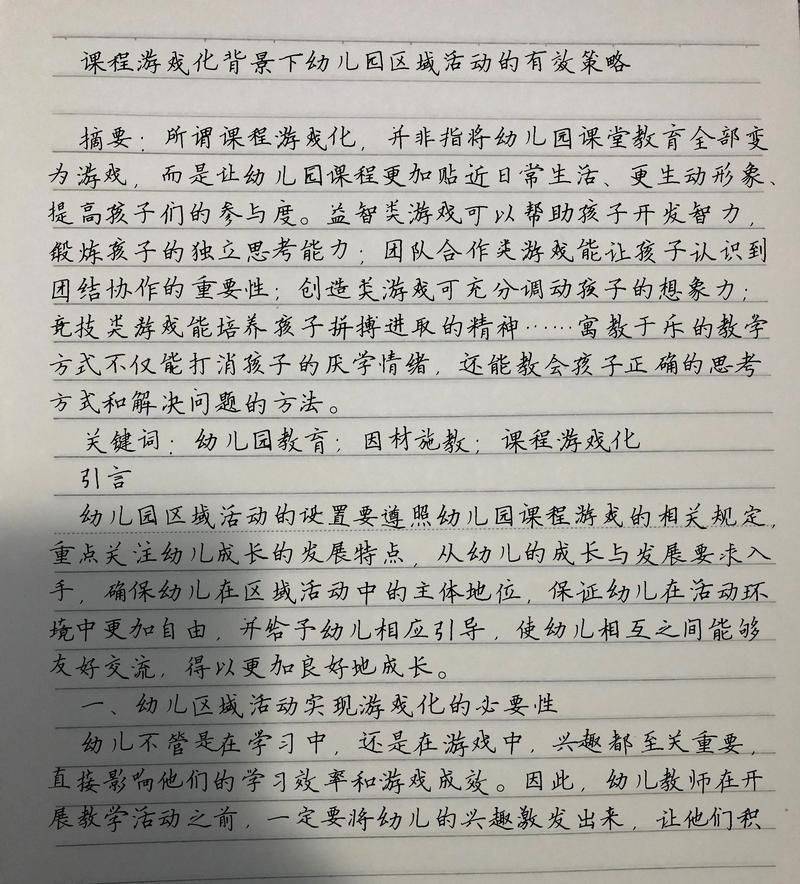 课程游戏化背景下幼儿园区域活动的有效策略
摘要：所谓课程游戏化，并非指将幼儿园课堂教育全部变
为游戏，而是让幼儿园课程更加贴近日常生活、更生动形象、
提高孩子们的参与度。益智类游戏可以帮助孩子开发智力，
锻炼孩子的独立思考能力；团队合作类游戏能让孩子认识到
团结协作的重要性；创造类游戏可充分调动孩子的想象力；
竞技类游戏能培养孩子拼搏进取的精神……寓教于乐的教学
方式不仅能打消孩子的厌学情绪，还能教会孩子正确的思考
方式和解决问题的方法。
关键词：幼儿园教育；因材施教；课程游戏化
引言
幼儿园区域活动的设置要遵照幼儿园课程游戏的相关规定，
重点关注幼儿成长的发展特点，从幼儿的成长与发展要求入
手，确保幼儿在区域活动中的主体地位，保证幼儿在活动环
境中更加自由，并给予幼儿相应引导，使幼儿相互之间能够
友好交流，得以更加良好地成长。
一、幼儿区域活动实现游戏化的必要性
幼儿不管是在学习中，还是在游戏中，兴趣都至关重要，
直接影响他们的学习效率和游戏成效。因此，幼儿教师在开
展教学活动之前，一定要将幼儿的兴趣激发出来，让他们积